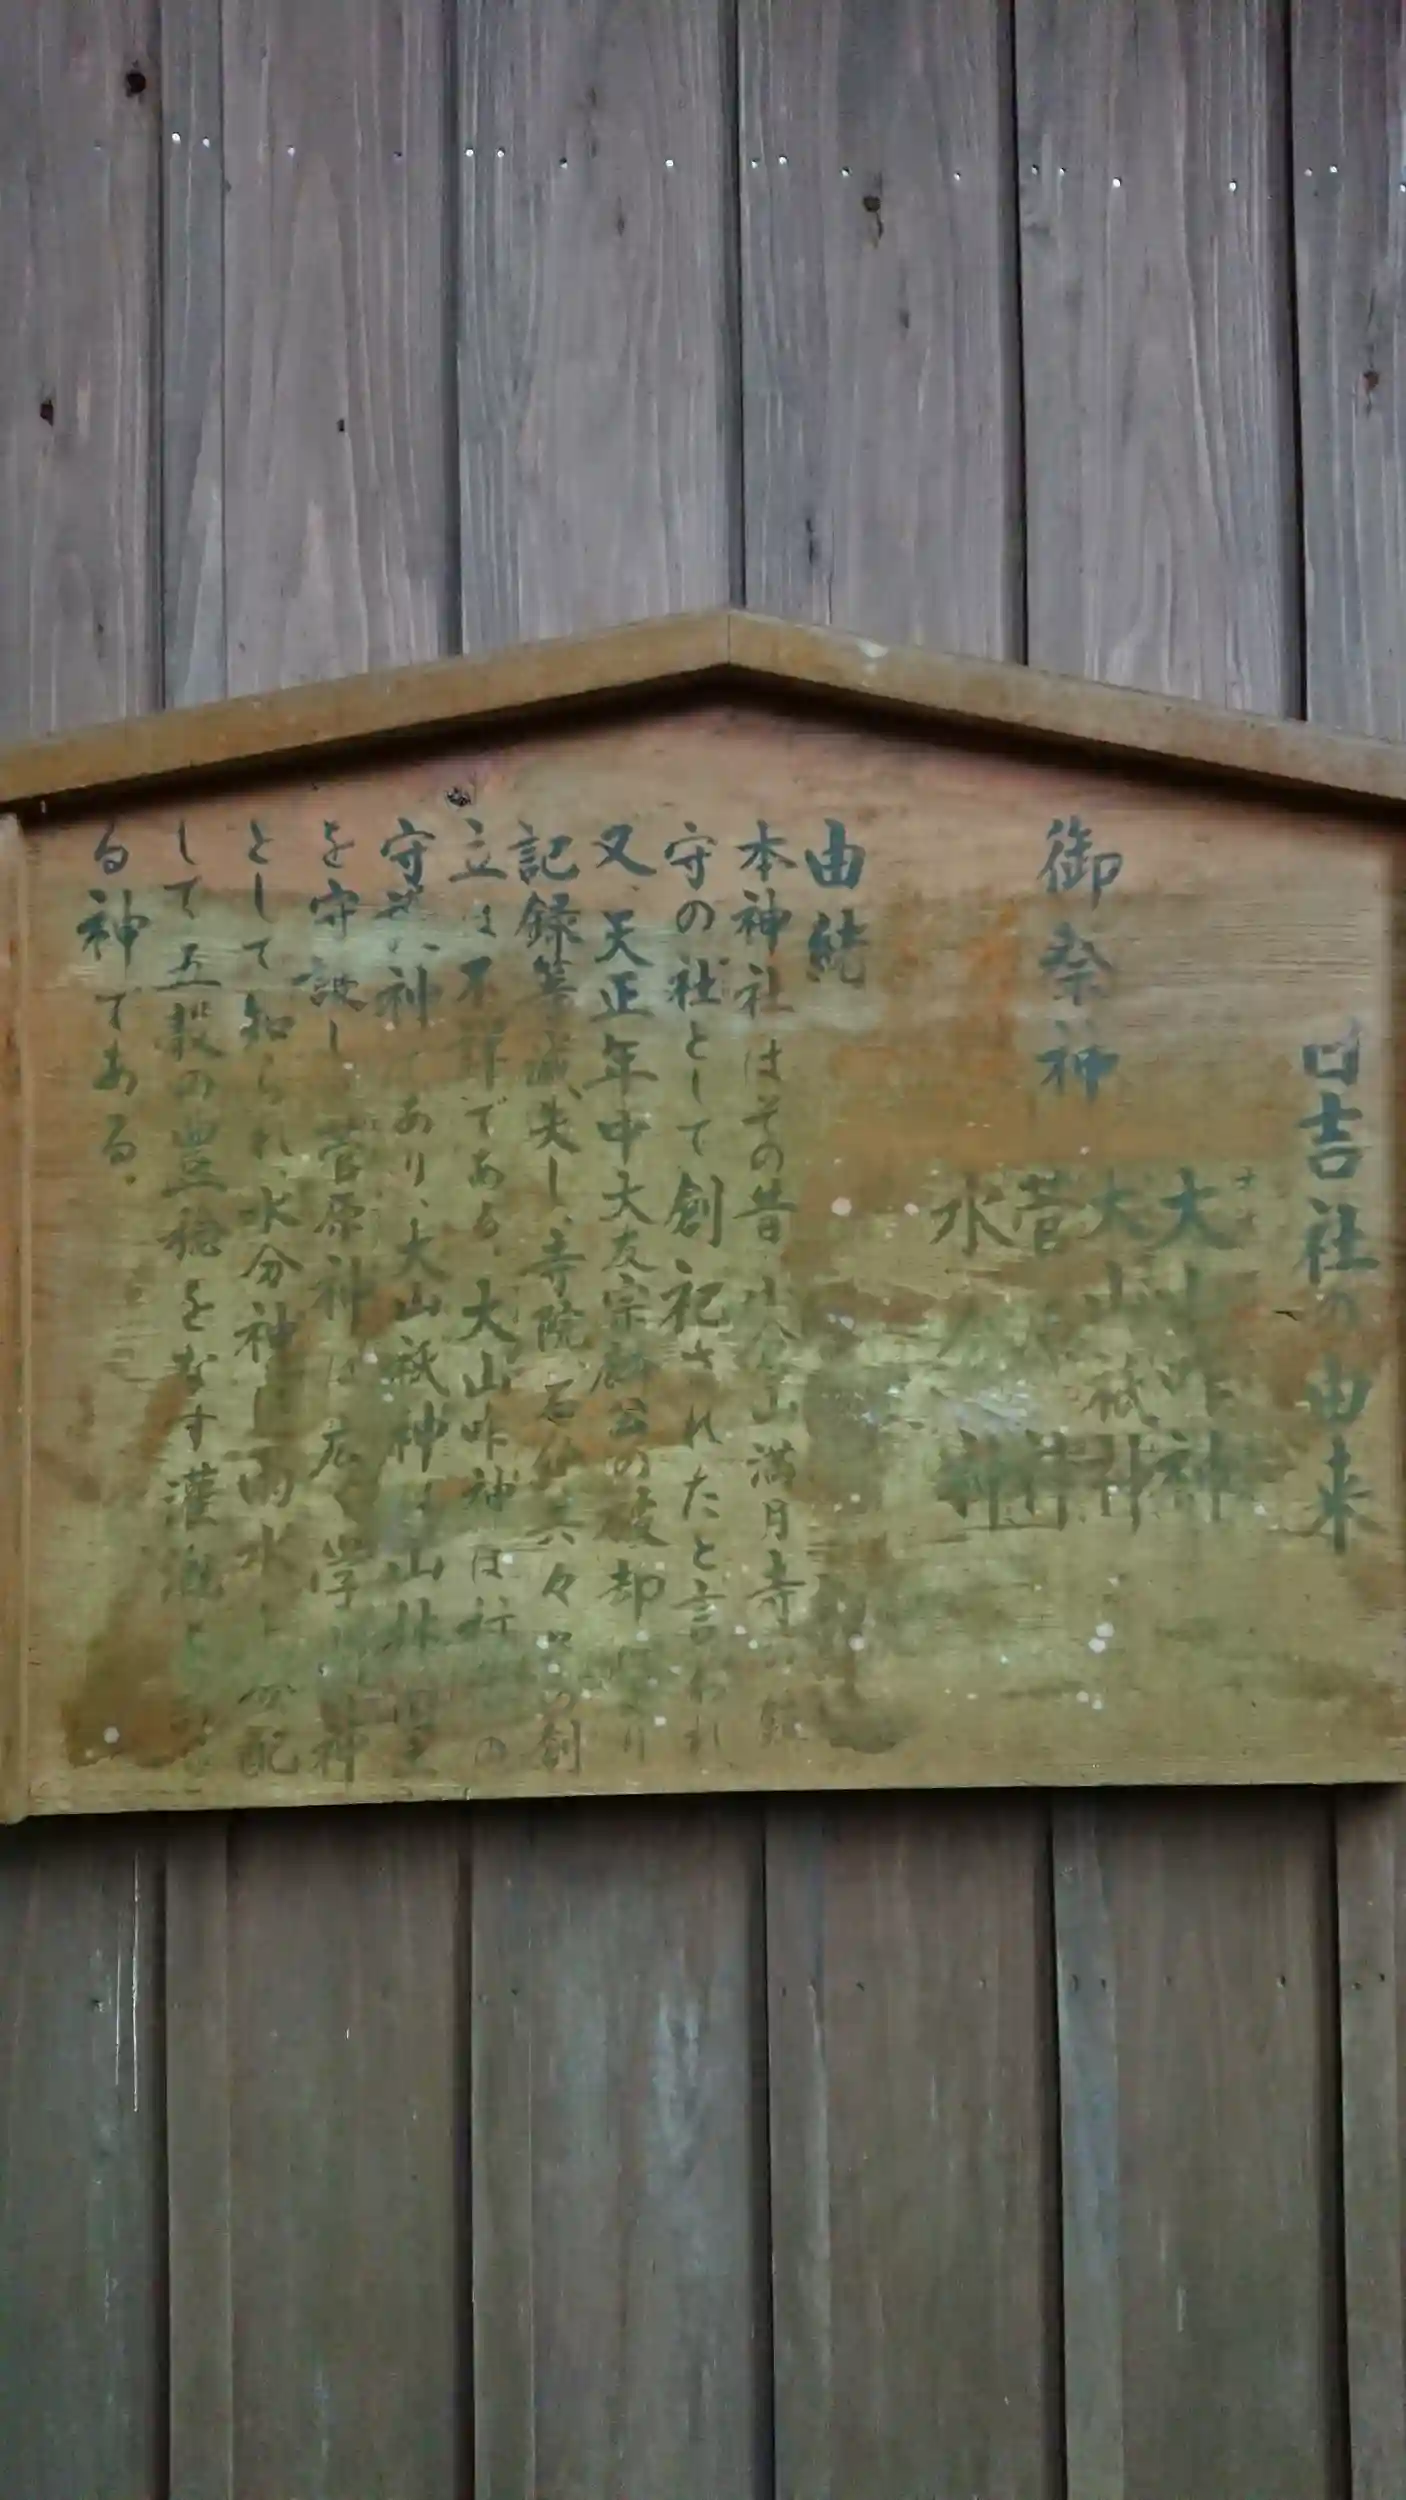 日吉社の由来
御祭神
大山咋神
大山祇神
菅
水分神
由緒
本神社はその昔 山満月寺の鎮
守の社として創祀されたと言われ
又、天正年中大友宗麟公の破却
記録等滅失し、寺院、石仏共々 の創
立は不詳である。大山咋神は の
守護 神であり、大山祇神は山林
を守護し 菅原神は広く学 神
として知られ、水分神は雨水 分配
して五穀の豊穣をなす灌漑
る神である。